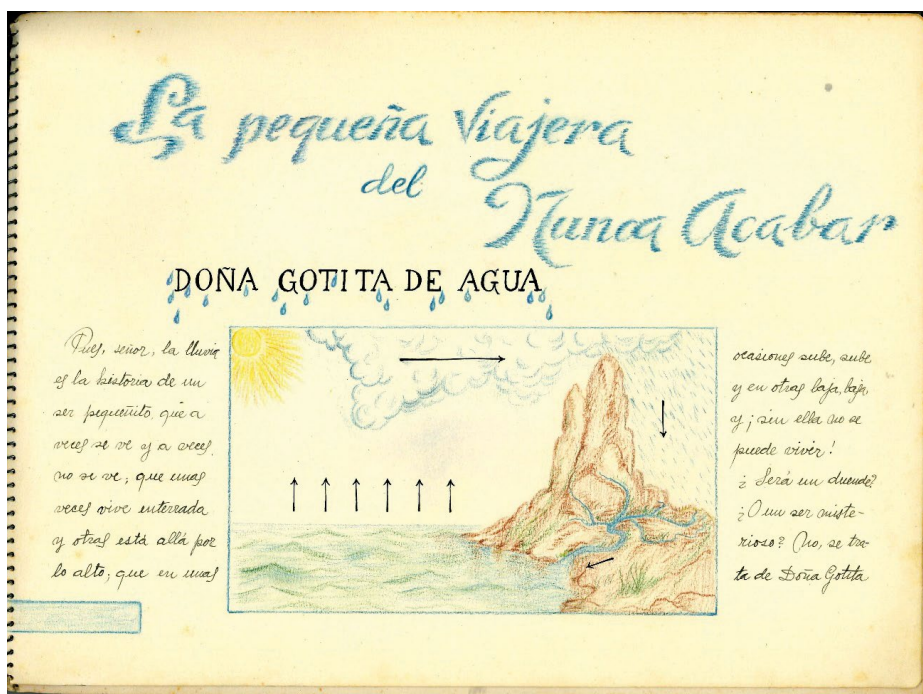 La pequeña Viajera
del
Nunca Acabar
DOÑA GOTITA DE AGUA
Pues, señor, la lluvia
es la historia de un
ser pequeñito, que a
veces se ve y a veces
no se ve; que unas
veces vive enterrada
y otras está allá por
lo alto; que en unas
ocasiones sube, sube
y en otras baja, baja,
y ¡sin ella no se
puede vivir!
¿Será un duende?
¿O un ser miste-
rioso? No, se tra-
ta de Doña Gotita